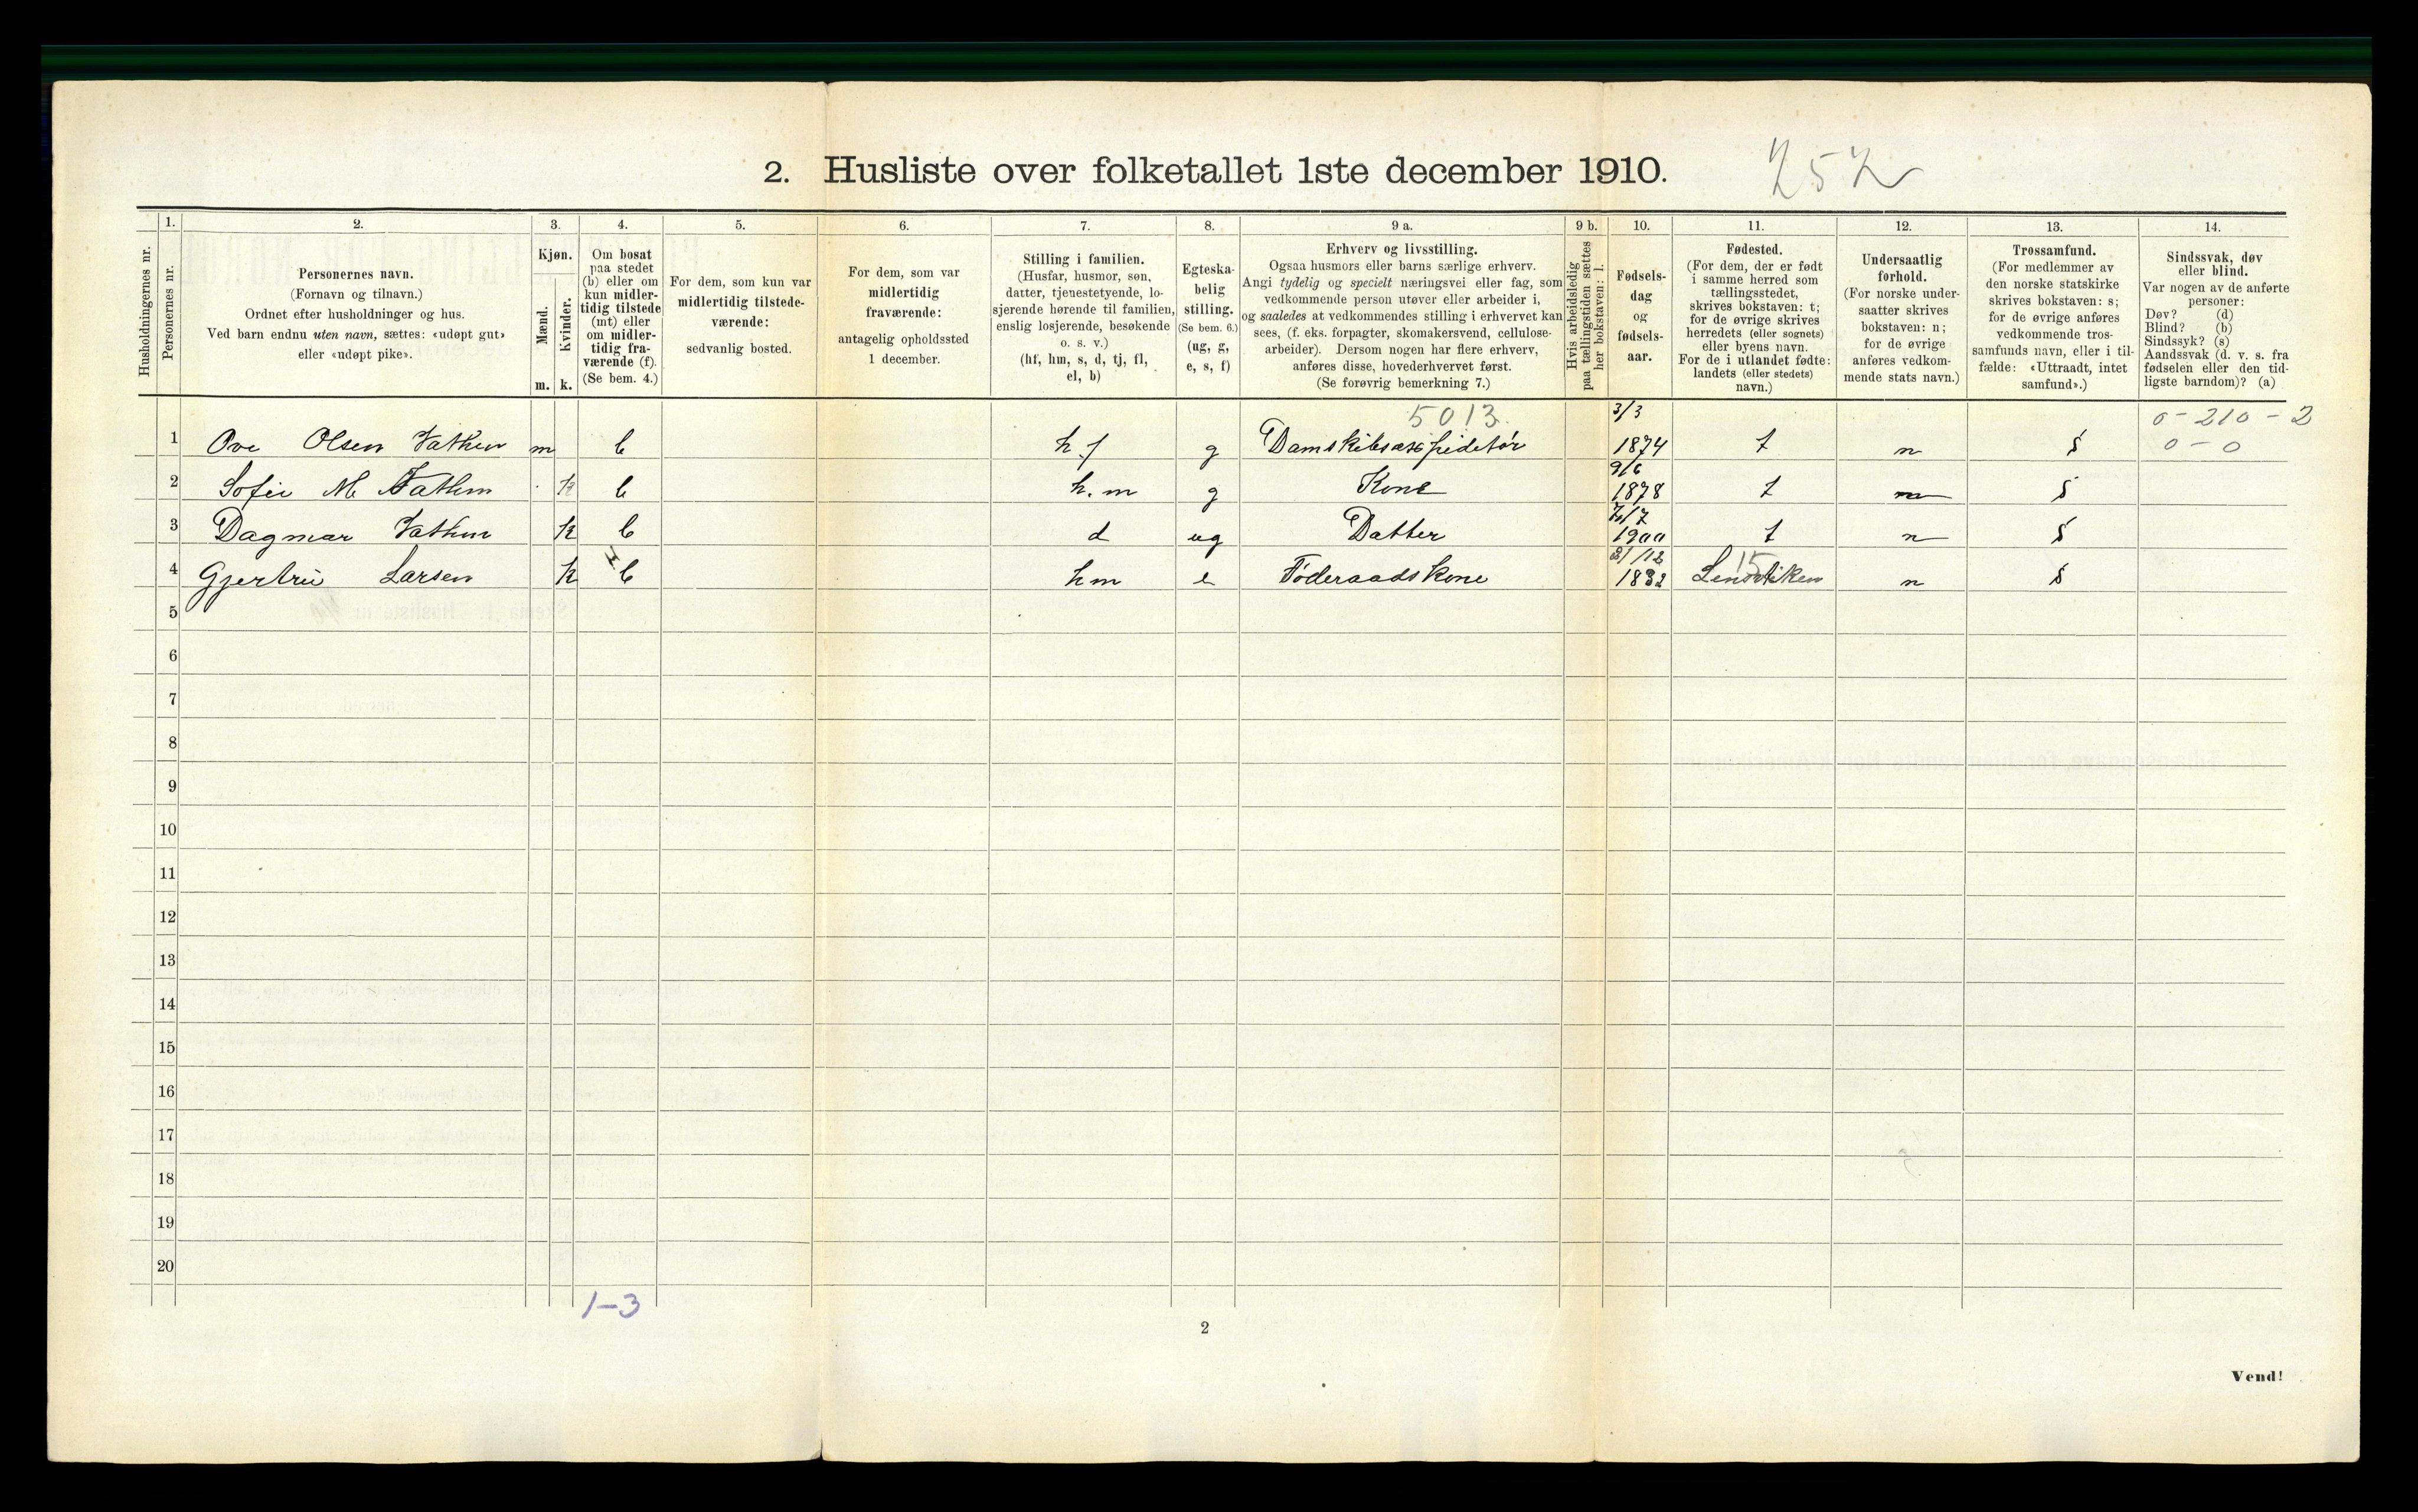 2. Husliste over folketallet 1ste december 1910. 252
Husholdningernes nr.
1. Personernes nr.
2.
Personernes navn.
(Fornavn og tilnavn.)
Ordnet efter husholdninger og hus.
Ved barn endnu uten navn, sættes: «udøpt gut»
eller «udøpt pike».
3.
Kjøn.
Mænd.
Kvinder.
m. k.
4.
Om bosat
paa stedet
(b) eller om
kun midler-
tidig tilstede
(mt) eller
om midler-
tidig fra-
værende (f).
(Se bem. 4.)
5.
For dem, som kun var
midlertidig tilstede-
værende:
sedvanlig bosted.
6.
For dem, som var
midlertidig
fraværende:
antagelig opholdssted
1 december.
7.
Stilling i familien.
(Husfar, husmor, søn,
datter, tjenestetyende, lo-
sjerende hørende til familien,
enslig losjerende, besøkende
o. s. v.)
(hf, hm, s, d, tj, fl,
el, b)
8.
Egteska-
belig
stilling.
(Se bem. 6.)
(ug, g,
e, s, f)
9 a.
Erhverv og livsstilling.
Ogsaa husmors eller barns særlige erhverv.
Angi tydelig og specielt næringsvei eller fag, som
vedkommende person utøver eller arbeider i,
og saaledes at vedkommendes stilling i erhvervet kan
sees, (f. eks. forpagter, skomakersvend, cellulose-
arbeider). Dersom nogen har flere erhverv,
anføres disse, hovederhvervet først.
(Se forøvrig bemerkning 7.)
9 b.
Hvis arbeidsledig
paa tællingstiden sættes
her bokstaven: l.
10.
Fødsels-
dag
og
fødsels-
aar.
11.
Fødested.
(For dem, der er født
i samme herred som
tællingsstedet,
skrives bokstaven: t;
for de øvrige skrives
herredets (eller sognets)
eller byens navn.
For de i utlandet fødte:
landets (eller stedets)
navn.)
12.
Undersaatlig
forhold.
(For norske under-
saatter skrives
bokstaven: n;
for de øvrige
anføres vedkom-
mende stats navn.)
13.
Trossamfund.
(For medlemmer av
den norske statskirke
skrives bokstaven: s;
for de øvrige anføres
vedkommende tros-
samfunds navn, eller i til-
fælde: «Uttraadt, intet
samfund».)
14.
Sindssvak, døv
eller blind.
Var nogen av de anførte
personer:
Døv? (d)
Blind? (b)
Sindssyk? (s)
Aandssvak (d. v. s. fra
fødselen eller den tid-
ligste barndom)? (a)
5013 3/3 0-210-2
1 Ove Olsen Vathen m b h.f g Damskibsæxspiditør 1874 t n s 0-0
9/6
2 Sofie M Vathen k b h.m g Kone 1878 t n s
7/7
3 Dagmar Vathen k b d ug Datter 1900 t n s
21/12 15
4 Gjertrü Larsen k b hm e Føderaadskone 1832 n s
5
6
7
8
9
10
11
12
13
14
15
16
17
18
19
20
1-3
2
Vend!